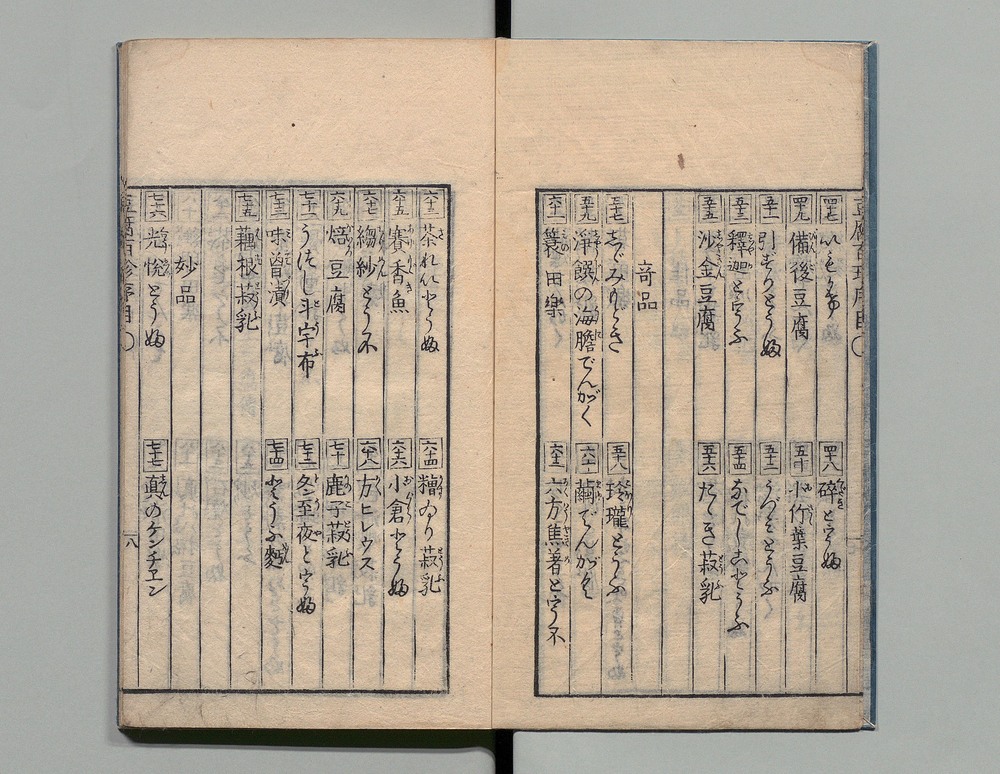 豆腐百珍序目
四十七
四十八 碎とうふ
四十九 備後豆腐
五十 小竹葉豆腐
五十一 引ずりとうふ
五十二 うづみとうふ
五十三 釋迦とうふ
五十四 なでしことうふ
五十五 沙金豆腐
五十六 たゝき菽乳
奇品
五十七 しゞみもどき
五十八 玲瓏とうふ
五十九 淨饌の海膽でんがく
六十 繭でんがく
六十一 簑田樂
六十二 六方焦着とうふ
六十三 茶れいとうふ
六十四 糟いり菽乳
六十五 賽香魚
六十六 小倉とうふ
六十七 縐紗とうふ
六十八 方ヒレウス
六十九 焙豆腐
七十 鹿子菽乳
七十一 うつし斗宇布
七十二 冬至夜とうふ
七十三 味曽漬
七十四 とうふ麪
七十五 藕根菽乳
妙品
七十六 光悦とうふ
七十七 真のケンチヱン
豆腐百珍序目 八